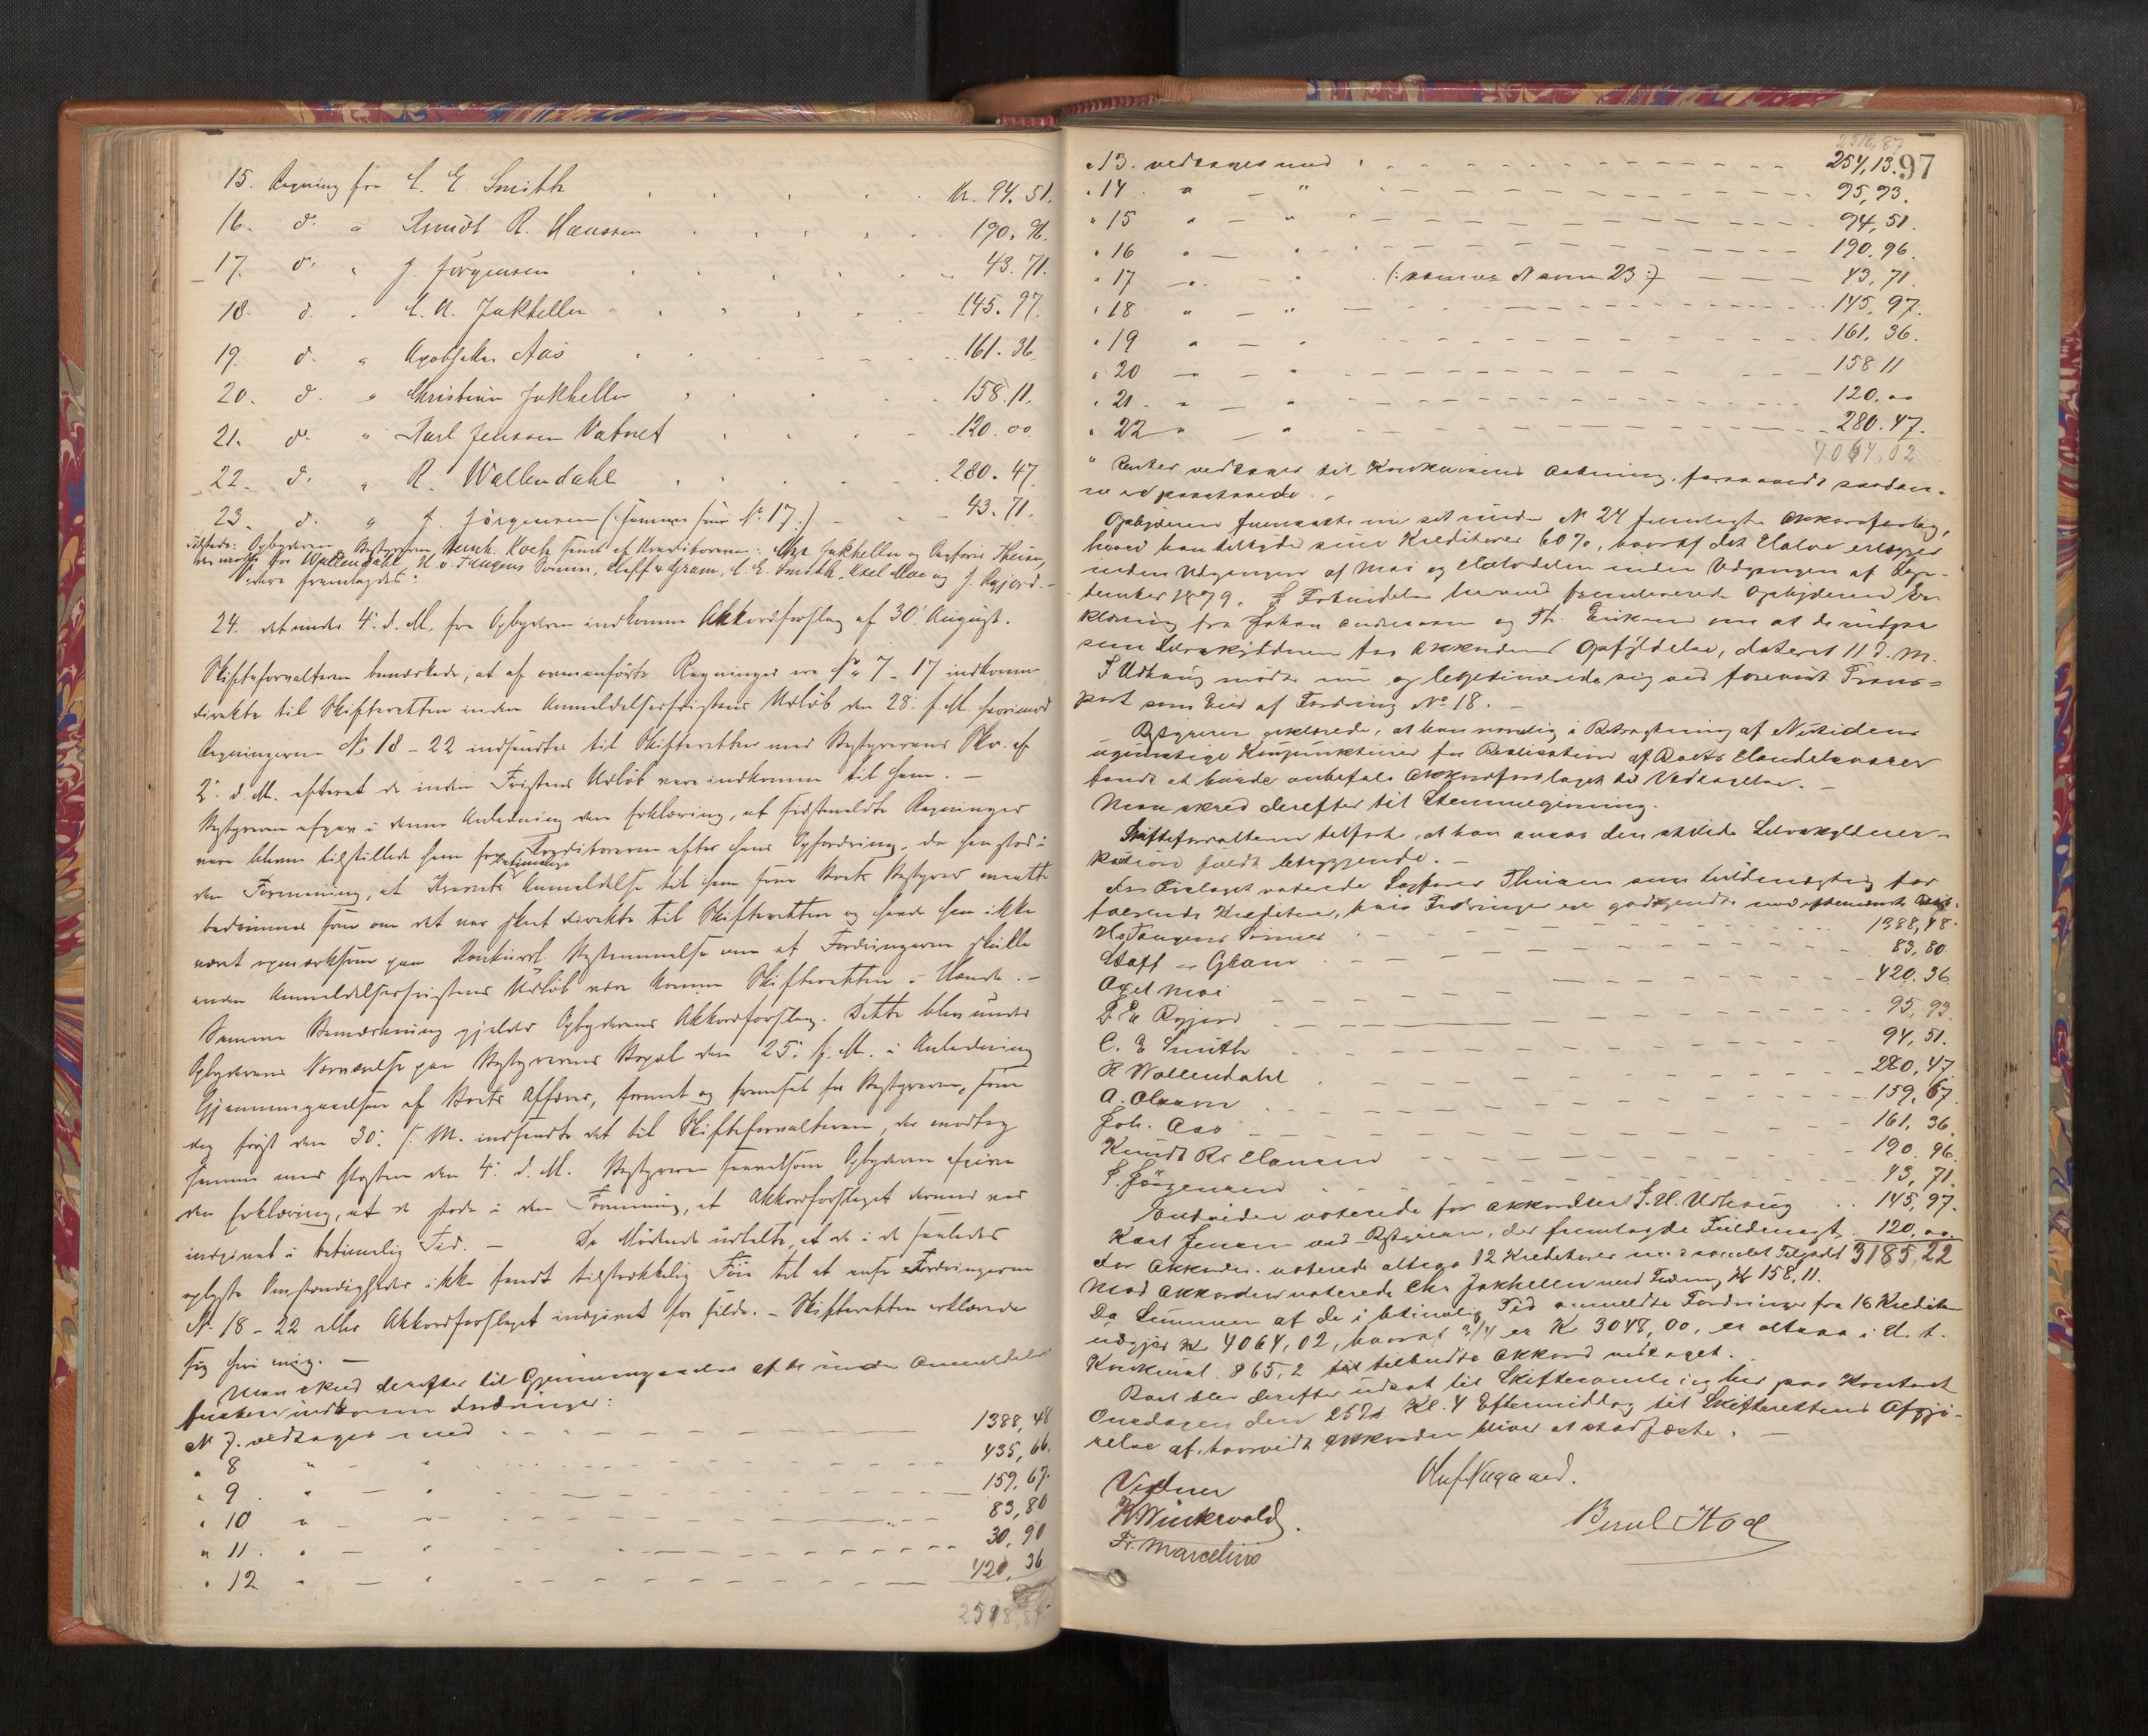 15. Regning fra C. E. Smith Kr. 94. 51.
16. d. " Knudt R. Hanssen 190. 96.
17. d. " J. Jörgensen 43. 71.
18. d. " C. A. Jakhelln 145. 97.
19. d. " Apotheker Aas 161. 36.
20. d. " Christian Jakhelln 158. 11.
21. d. " Karl Jenssen Vatnet 120. 00
22. d. " R. Wallendahl 280. 47.
23. d. " J. Jörgensen (: samme som No 17 :) 43. 71.
tilstede: Opbyderen, Bestyreren Bernh. Koch samt af Kreditorerne: Chr. Jakhelln og Sagförer Thiisen,
der mødte for Wallendahl, H. v. Tangens Sønner, Staff & Gram, C. E. Smith, Axel Moe og J. Ryjord. -
videre fremlagdes:
24. det under 4. d. M. fra Opbyderen indkomne Akkordforslag af 30. August.
Skifteforvalteren bemærkede, at af ovenanførte Regninger ere No 7 - 17 indkomne
direkte til Skifteretten inden Anmeldelsesfristens Udløb den 28. f. M. hvorimod
Regningerne No 18 - 22 indsendtes til Skifteretten med Bestyrerens Skr. af
2. d. M. efterat de inden Fristens Udløb vare indkomne til ham. -
Bestyreren afgav i denne Anledning den Erklæring, at sidstmeldte Regninger
vare blevne tilstillede ham fra Kreditorerne efter hans Opfordring, da han stod i
den Formening, at Kravets betimelige Anmeldelse til ham som Boets Bestyrer maatte
bedømmes som om det var skeet direkte til Skifteretten og havde han ikke
været opmærksom paa Konkursl. Bestemmelse om at Fordringerne skulle
inden Anmeldelsesfristens Udløb være komne Skifteretten i Hænde. -
Samme Bemærkning gjelder Opbyderens Akkordforslag. Dette blev under
Opbyderens Nærværelse paa Bestyrerens Bopæl den 25. f. M. i Anledning
Gjennemgaaelsen af Boets Affærer, formet og fremsat for Bestyreren, som
dog først den 30. f. M. indsendte det til Skifteforvalteren, der modtog
samme med Posten den 4. d. M. Bestyreren saavelsom Opbyderen afgive
den Erklæring, at de stode i den Formening, at Akkordforslaget dermed var
indgivet i betimelig Tid. - De Mødende udtalte, at de i de saaledes
oplyste Omstændigheder ikke fandt tilstrækkelig Føie til at anse Fordringerne
No 18 - 22 eller Akkordforslaget indgivet for silde. - Skifteretten erklærede
sig heri enig. -
Man skred derefter til Gjennemgaaelse af de inden Anmeldelses
fristen indkomne Fordringer:
No 7. vedtages med 1388, 48
" 8 " - " 435, 66.
" 9 . " - " 159, 67.
" 10 " - " 83, 80
" 11. " - " 30, 90
" 12 " - " 420, 36
2518,87
2518,87
97
" 13. vedtages med 254, 13.
" 14 " - " 95, 93.
" 15 " - " 94, 51.
" 16 " - " 190, 96.
" 17 " - " (: samme N som 23 :) 43, 71.
" 18 " - " 145, 97.
" 19 " - " 161, 36.
" 20 " - " 158 11
" 21. " - " 120. 00
" 22 " - " 280. 47.
4064,02
" Renter vedtages til Konkursens Aabning, forsaavidt saadan-
ne er paastaaede. -
Opbyderen fremsatte nu sit under No 24 fremlagte Akkordforslag,
hvoved han tilbyder sine Kreditorer 60 %, hvoraf det Halve erlægges
inden Udgangen af Mai og Halvdelen inden Udgangen af Sep-
tember 1879. I Forbindelse hermed fremleverede Opbyderen Er-
klæring fra Johan Andreassen og Th. Eriksen om at de indgaa
som Selvskyldnere for Akkordens Opfyldelse, dateret 11 d. M.
S Udhaug mødte nu og legitimerede sig ved forevist Trans=
port som Eier af Fordring No 18. -
Bestyreren erklærede, at han navnlig i Betragtning af Nutidens
ugunstige Konjunkturer for Realisation af Boets Handelsvarer
fandt at burde anbefale Akkordforslaget til Vedtagelse. -
Man skred derefter til Stemmegivning.
Skifteforvalteren tilførte, at han ansaa den stillede Selvskyldner-
kaution fuldt betryggende. -
For Forslaget voterede Sagfører Thiisen som befuldmægtig for
følgende Kreditorer, hvis Fordringer ere godkjendte med
H v Tangens Sønner 1388, 48.
Staff & Gram 83, 80
Axel Moe 420. 36
J. E. Ryjord 95, 93.
C. E Smith 94, 51.
R Wallendahl 280, 47
A. Olssen 159, 67.
Joh. Aas 161, 36.
Knudt R. Hanssen 190. 96.
J. Jörgensen 43, 71.
Endvidere voterede for Akkorden S. H. Udhaug 145, 97.
Karl Jensen ved Bestyreren, der fremlagde Fuldmagt 120, 00.
For Akkorden voterede altsaa 12 Kreditorer med samlet Tilgodeh. 3185, 22
Mod Akkorden voterede Chr Jakhelln med Fordring Kr 158, 11.
Da Summen af de i betimelig Tid anmeldte Fordringer fra 16 Kreditorer
udgjør Kr 4064, 02, hvoraf 3/4 er Kr 3048, 00, er altsaa i H. t.
Konkursl. § 65, 2 den tilbudte Akkord vedtaget.
Boet blev derefter udsat til Skiftesamling her paa Kontoret
Onsdagen den 25de Kl. 4 Eftermiddag til Skifterettens Afgjø-
relse af, hvorvidt Akkorden bliver at stadfæste. -
Olaf Nygaard.
Vidner
K Winkwold.
Fr. Marcelius
Bernh Koch